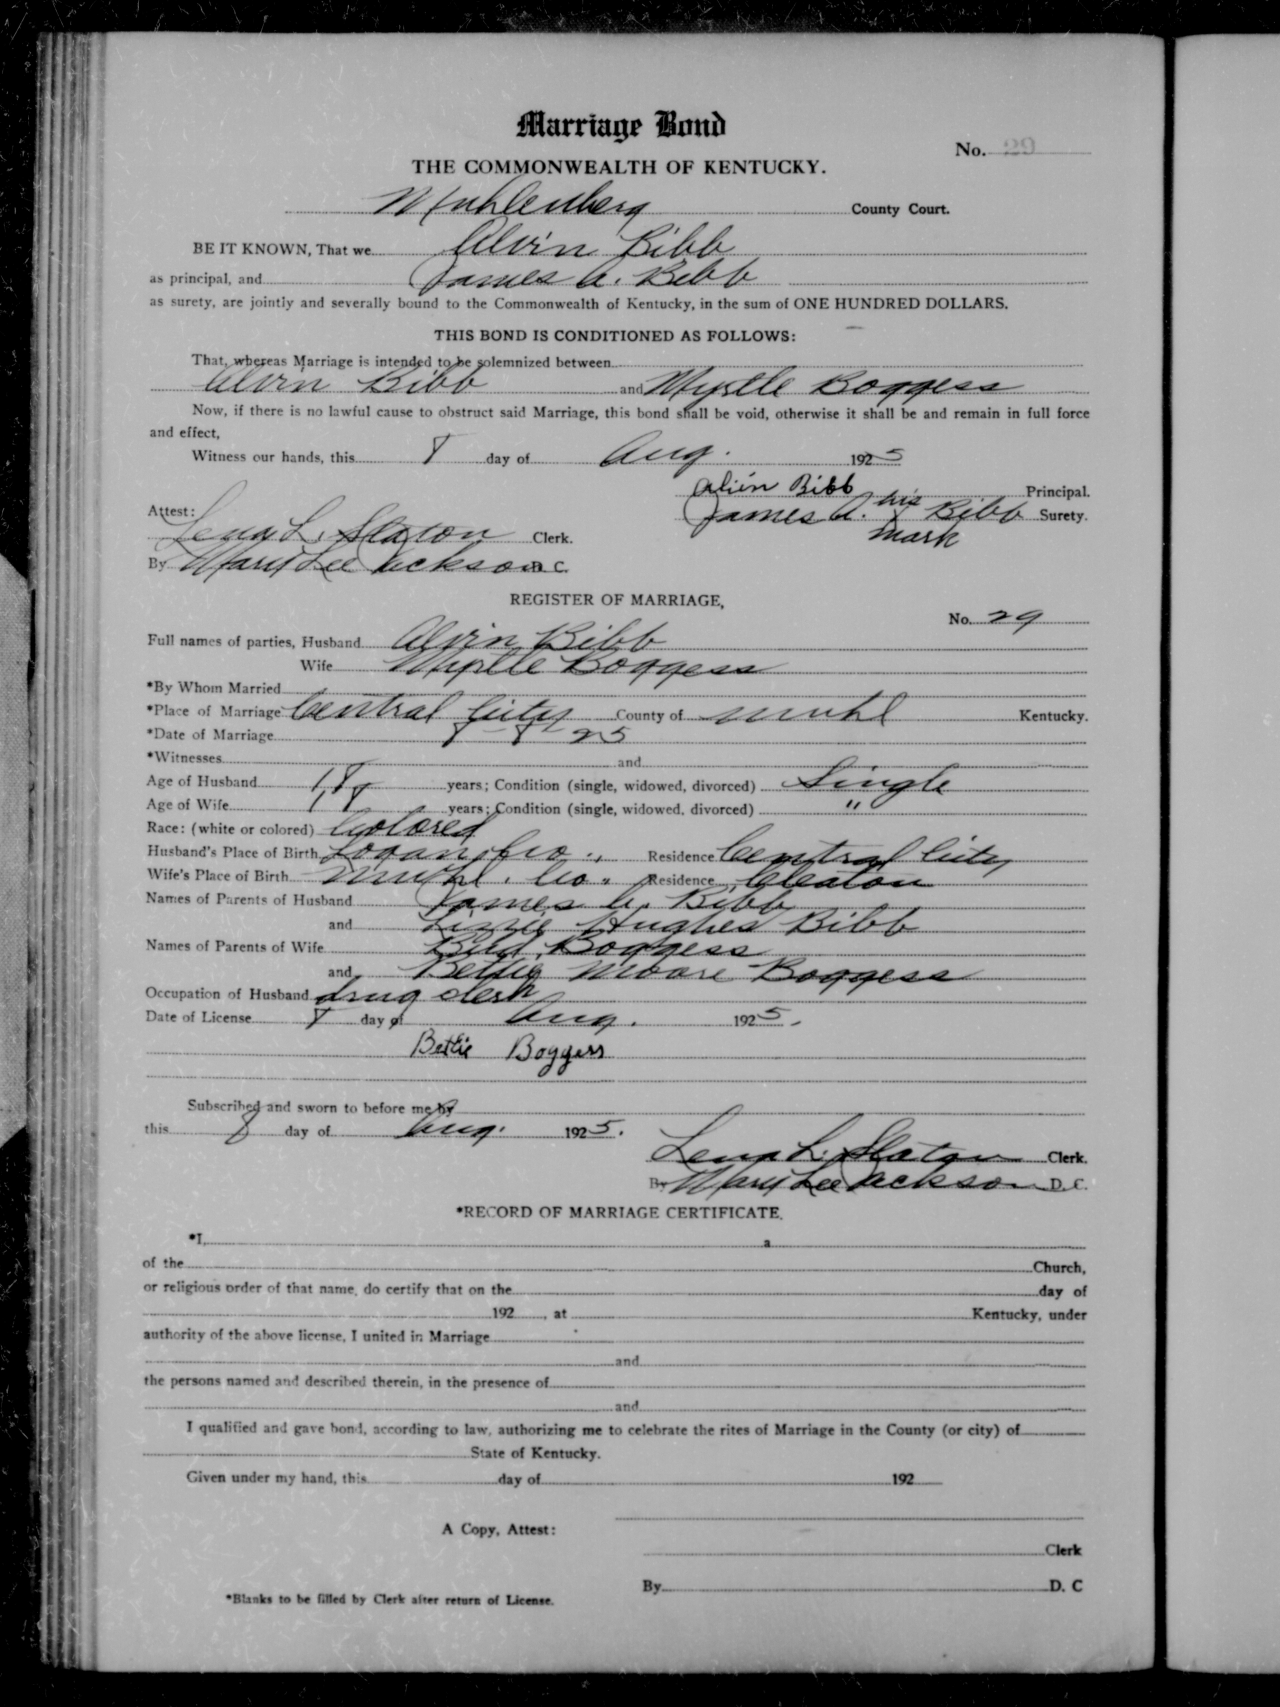 Marriage Bond
No. 29
THE COMMONWEALTH OF KENTUCKY.
Muhlenberg County Court.
BE IT KNOWN, That we Alvin Bibb
as principal, and James A. Bibb
as surety, are jointly and severally bound to the Commonwealth of Kentucky, in the sum of ONE HUNDRED DOLLARS.
THIS BOND IS CONDITIONED AS FOLLOWS:
That, whereas Marriage is intended to be solemnized between
Alvin Bibb and Myrtle Boggess
Now, if there is no lawful cause to obstruct said Marriage, this bond shall be void, otherwise it shall be and remain in full force
and effect,
Witness our hands, this 8 day of Aug. 1925
Alvin Bibb Principal.
Attest: James A. his X mark Bibb Surety.
Lena L. Slaton Clerk.
By Mary Lee Jackson D. C.
REGISTER OF MARRIAGE,
No. 29
Full names of parties, Husband Alvin Bibb
Wife Myrtle Boggess
*By Whom Married
*Place of Marriage Central City County of Muhl Kentucky.
*Date of Marriage 8-8-25
*Witnesses and
Age of Husband 18 years; Condition (single, widowed, divorced) Single
Age of Wife 18 years; Condition (single, widowed, divorced) "
Race: (white or colored) Colored
Husband's Place of Birth Logan Co., Residence Central City
Wife's Place of Birth Muhl. Co. Residence Cleaton
Names of Parents of Husband James A. Bibb
and Lizzie Hughes Bibb
Names of Parents of Wife Bud Boggess
and Bettie Moore Boggess
Occupation of Husband drug clerk
Date of License 8 day of Aug. 1925.
Bettie Boggess
Subscribed and sworn to before me by
this 8 day of Aug. 1925.
Lena L. Slaton Clerk.
By Mary Lee Jackson D. C.
*RECORD OF MARRIAGE CERTIFICATE.
*I, a
of the Church,
or religious order of that name, do certify that on the day of
192 , at Kentucky, under
authority of the above license, I united in Marriage
and
the persons named and described therein, in the presence of
and
I qualified and gave bond, according to law, authorizing me to celebrate the rites of Marriage in the County (or city) of
State of Kentucky.
Given under my hand, this day of 192
A Copy, Attest:
Clerk
By D. C
*Blanks to be filled by Clerk after return of License.